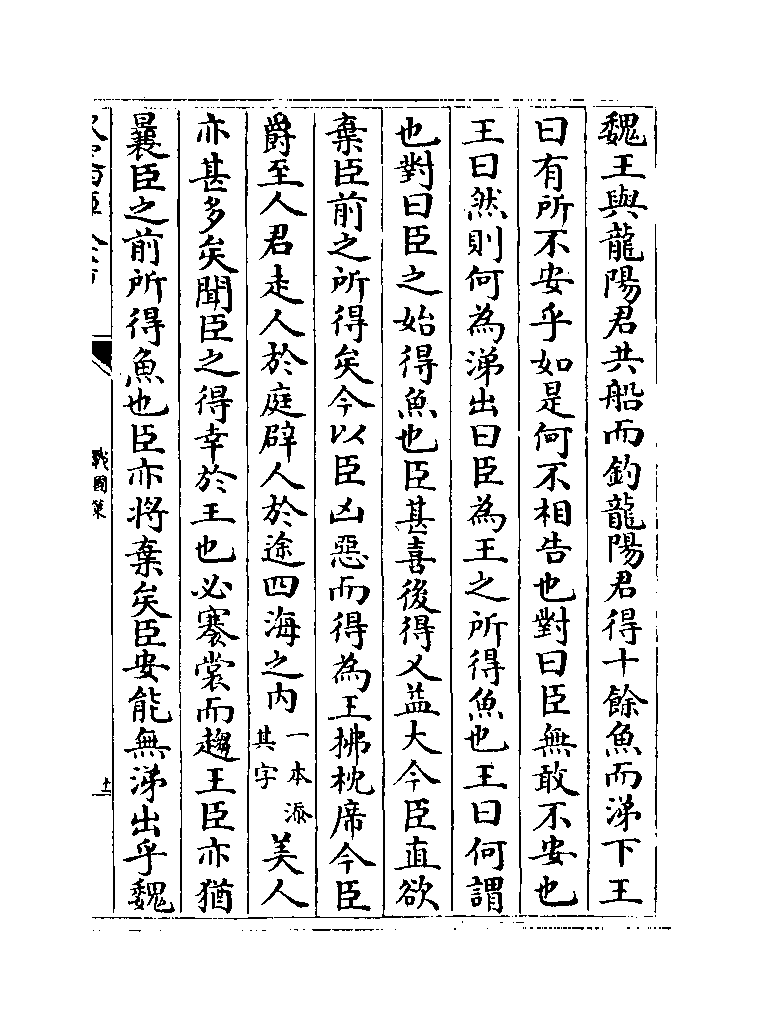 魏王與龍陽君共船而釣龍陽君得十餘魚而涕下王
曰有所不安乎如是何不相告也對曰臣無敢不安也
王曰然則何為涕出曰臣為王之所得魚也王曰何謂
也對曰臣之始得魚也臣甚喜後得又益大今臣直欲
棄臣前之所得矣今以臣凶惡而得為王拂枕席今臣
爵至人君走人於庭辟人於途四海之内一本添其字美人
亦甚多矣聞臣之得幸於王也必褰裳而趨王臣亦猶
曩臣之前所得魚也臣亦将棄矣臣安能無涕出乎魏
戰國策
十二